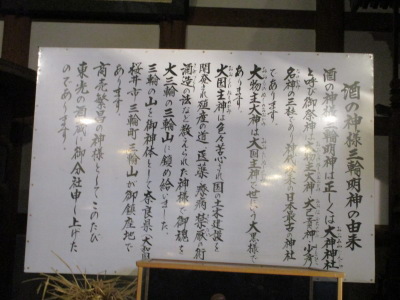 酒の神様三輪明神の由来
酒の神様三輪明神は正しくは大神神社
と呼び御祭神は大物主大神 大己貴神 少彦
名神の三柱であり神代以来の日本最古の神社
であります。
大物主大神は大国主神と申し世にいう大黒様で
あります。
大国主神は色々苦心され国の土木建設を
開発され殖産の道 医薬 療病 禁厭の術
酒造の法などを教えられた神様で御魂を
大三輪の三輪山に鎮め給いました。
三輪の山を御神体として奈良県（大和国）
桜井市三輪町三輪山が御鎮座地で
あります。
商売繁昌の神様としてこのたび
東光の酒蔵に御分社申し上げた
のであります。